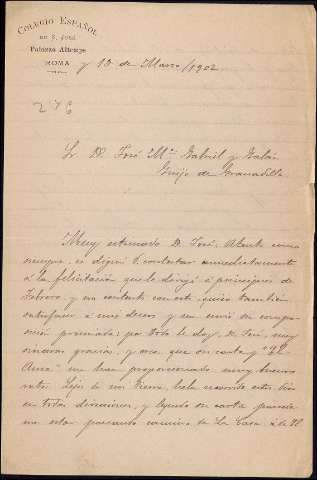 COLEGIO ESPAÑOL
DE S. JOSÉ
Palazzo Altemps
ROMA
y 13 de Marzo/1902
276
Sr. D. José Mª Gabriel y Galán
Guijo de Granadilla
Muy estimado D. José: Atento como
siempre, se dignó V. contestar inmediatamente
á la felicitación que le dirigí á principios de
Febrero, y no contento con esto, quiso también
satisfacer á mis deseos y me envió su compo-
sición premiada; por todo le doy, D. José, muy
sinceras gracias, y crea que su carta y "El
Ama" me han proporcionado muy buenos
ratos. Lejos de mi tierra, he recorrido estos días
en todas direcciones, y leyendo su carta parecía
me estar paseando camino de La Casa á la